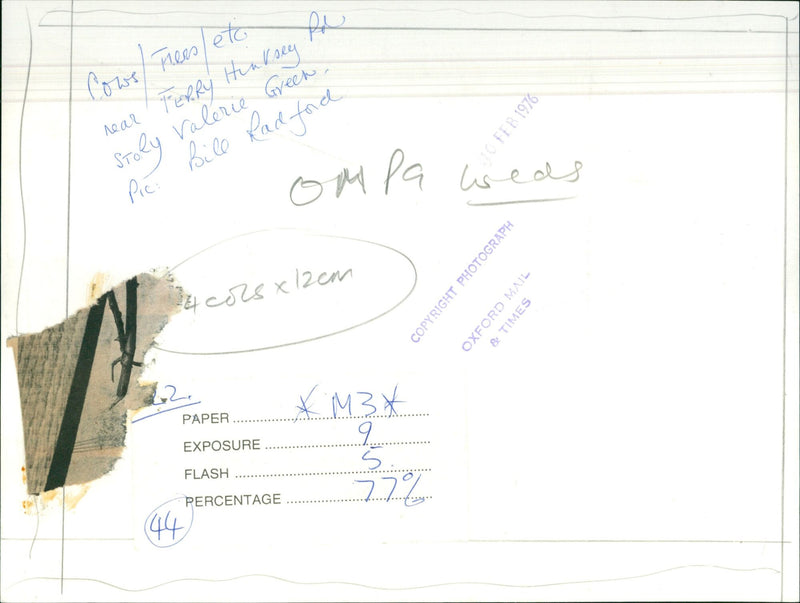 Cows/Trees/etc
near FERRY Hinksey Rd
STORY Valerie Green.
Pic: Bill Radford
FEB 1976
OMPA weds
COPYRIGHT PHOTOGRAPH
OXFORD MAIL
& TIMES
4 cols x 12cm
22.
PAPER *M3*
EXPOSURE 9
FLASH 5
PERCENTAGE 77%
44